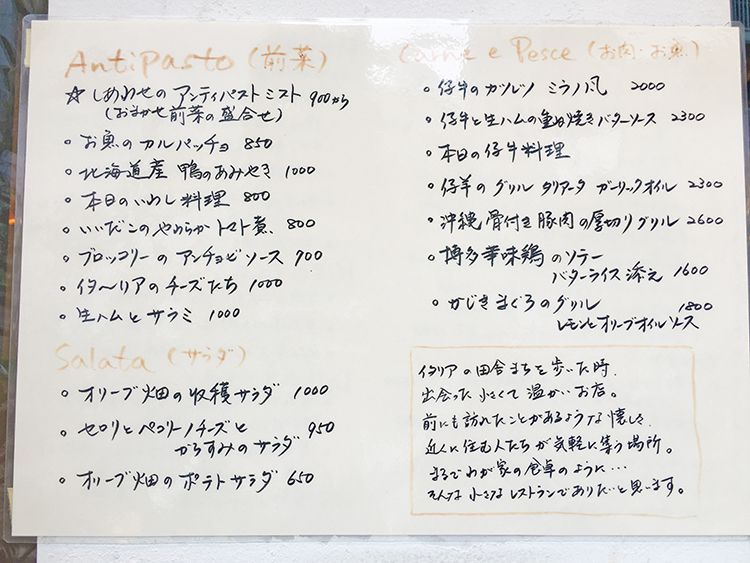 Antipasto (前菜)
☆ しあわせの アンティパストミスト 900から
(おまかせ前菜の盛合せ)
○ お魚のカルパッチョ 850
○ 北海道産 鴨のあみやき 1000
○ 本日のいわし料理 800
○ いいだこのやわらかトマト煮 800
○ ブロッコリーのアンチョビソース 900
○ イタ〜リアのチーズたち 1000
○ 生ハムとサラミ 1000
Salata (サラダ)
○ オリーブ畑の収穫サラダ 1000
○ セロリとペコリーノチーズと
からすみのサラダ 950
○ オリーブ畑のポテトサラダ 650
Carne e Pesce (お肉・お魚)
○ 仔牛のカツレツ ミラノ風 2000
○ 仔牛と生ハムの重ね焼きバターソース 2300
○ 本日の仔牛料理
○ 仔羊のグリル タリアータ ガーリックオイル 2300
○ 沖縄骨付き豚肉の厚切りグリル 2600
○ 博多華味鶏のソテー
バターライス添え 1600
○ かじきまぐろのグリル
レモンとオリーブオイルソース 1800
イタリアの田舎まちを歩いた時、
出会った小さくて温かいお店。
前にも訪れたことがあるような懐しさ
近くに住む人たちが気軽に集う場所。
まるでわが家の食卓のように…
そんな小さなレストランでありたいと思います。